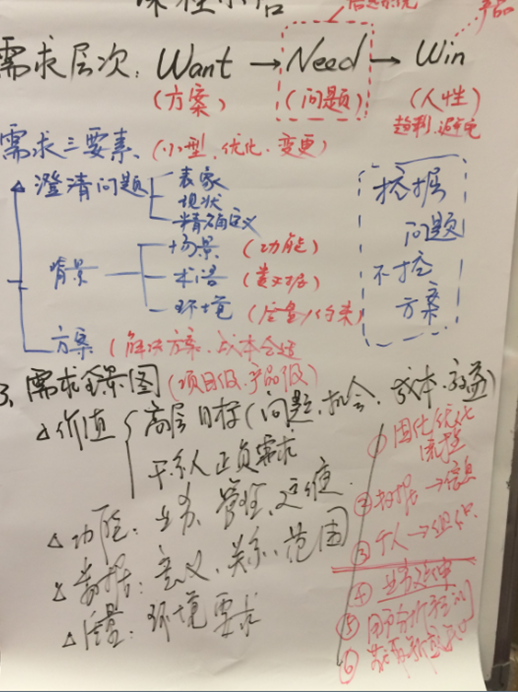 课程小结
需求层次: Want → Need → Win
(方案) (问题) (人性)
趋利、避害
产品
需求三要素 (小型、优化、变更)
澄清问题
表象
现状
精确定义
背景
场景 (功能)
术语 (数据)
环境 (质量/约束)
方案 (解决方案、成本合理)
挖掘
问题
不挖
方案
3、需求全景图 (项目级、产品级)
△价值 { 高层目标 (问题、机会、成本、效益)
干系人正负需求
△功能: 业务、管理、运维
△数据: 意义、关系、范围
△质量: 环境要求
① 固化优化
流程
② 数据→信息
③ 个人→组织
④
⑤ 用户分析
⑥